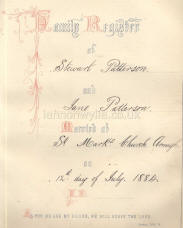 Family Register
of
Stewart Patterson.
and
Jane Patterson.
Married at
St Mark's Church Armagh
on
12th day of July. 1884.
AS FOR ME AND MY HOUSE, WE WILL SERVE THE LORD.